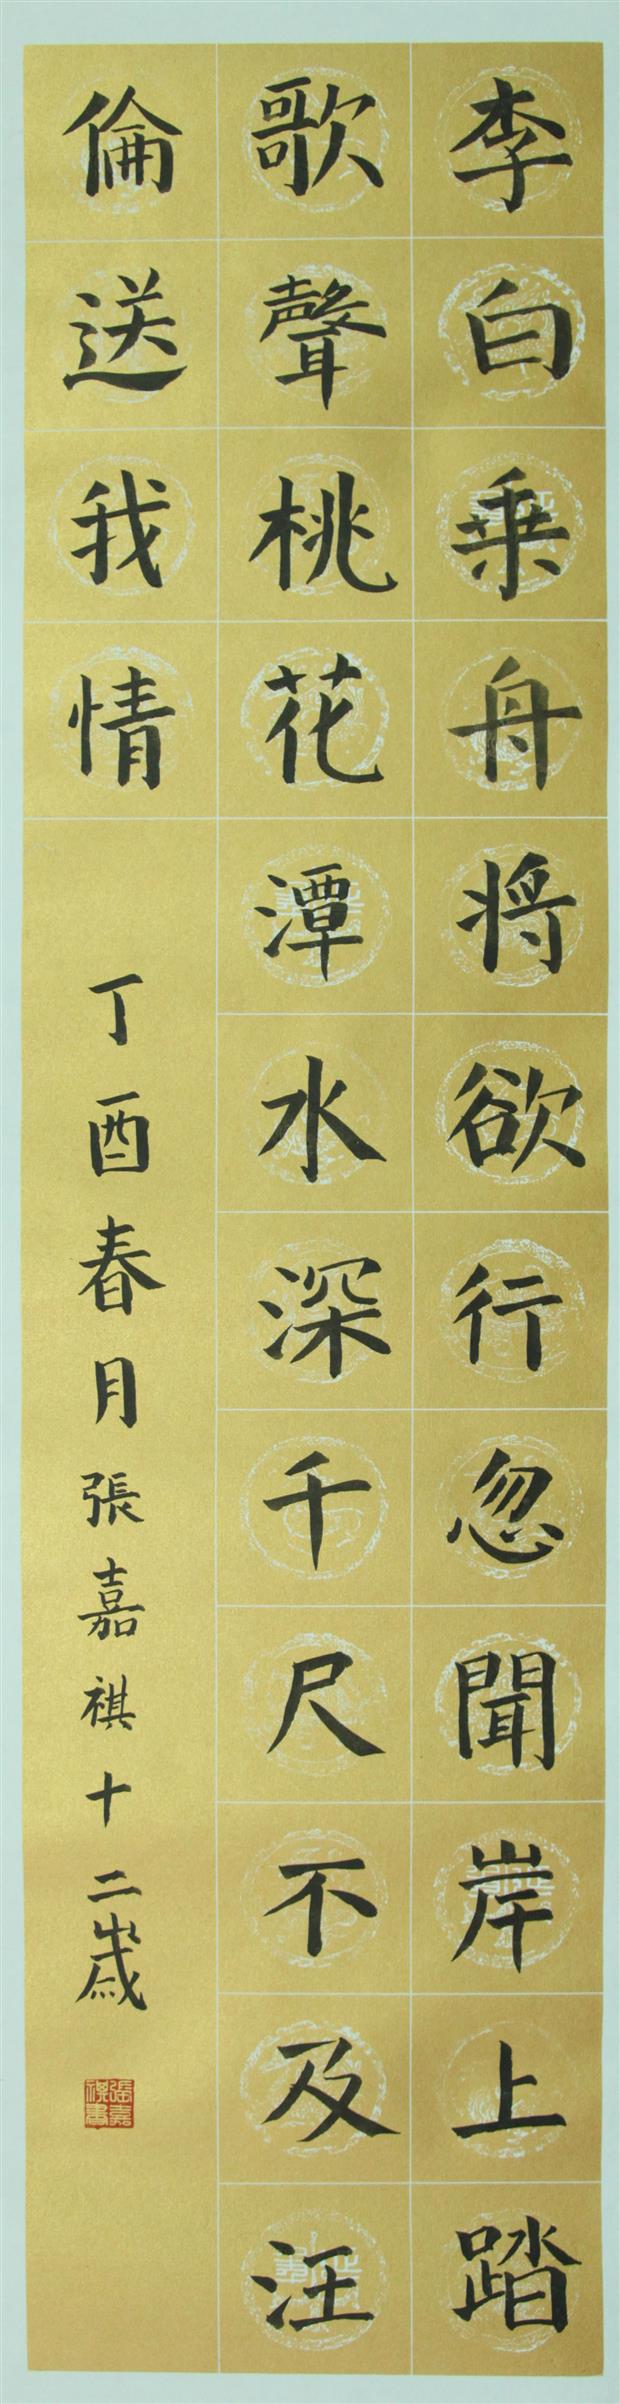 李白乗舟将欲行忽聞岸上踏
歌聲桃花潭水深千尺不及汪
倫送我情
丁酉春月張嘉祺十二歲
張嘉祺書